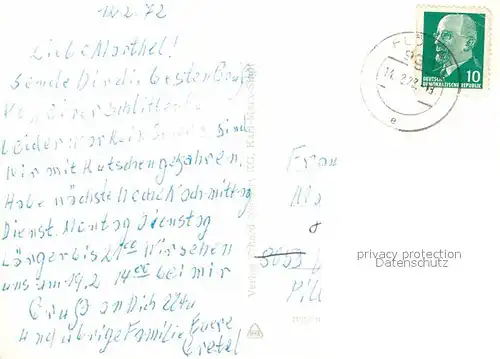 12.2.72
Liebe Marthel!
Sende Dir die besten Grüße
Von einer Schlitten
Leider war kein Schnee sind
wir mit Kutschen gefahren.
Habe nächste Woche Nachmittag
Dienst. Montag Dienstag
Länger bis 21°° Wir sehen
uns am 19.2 14°° bei mir
Gruß an Dich
und übrige Familie Euere
Gretel
Verlag
KG, Karl-Marx-Stadt
14.2.72
e
DEUTSCHE
DEMOKRATISCHE REPUBLIK
10
Frau
privacy protection
Datenschutz